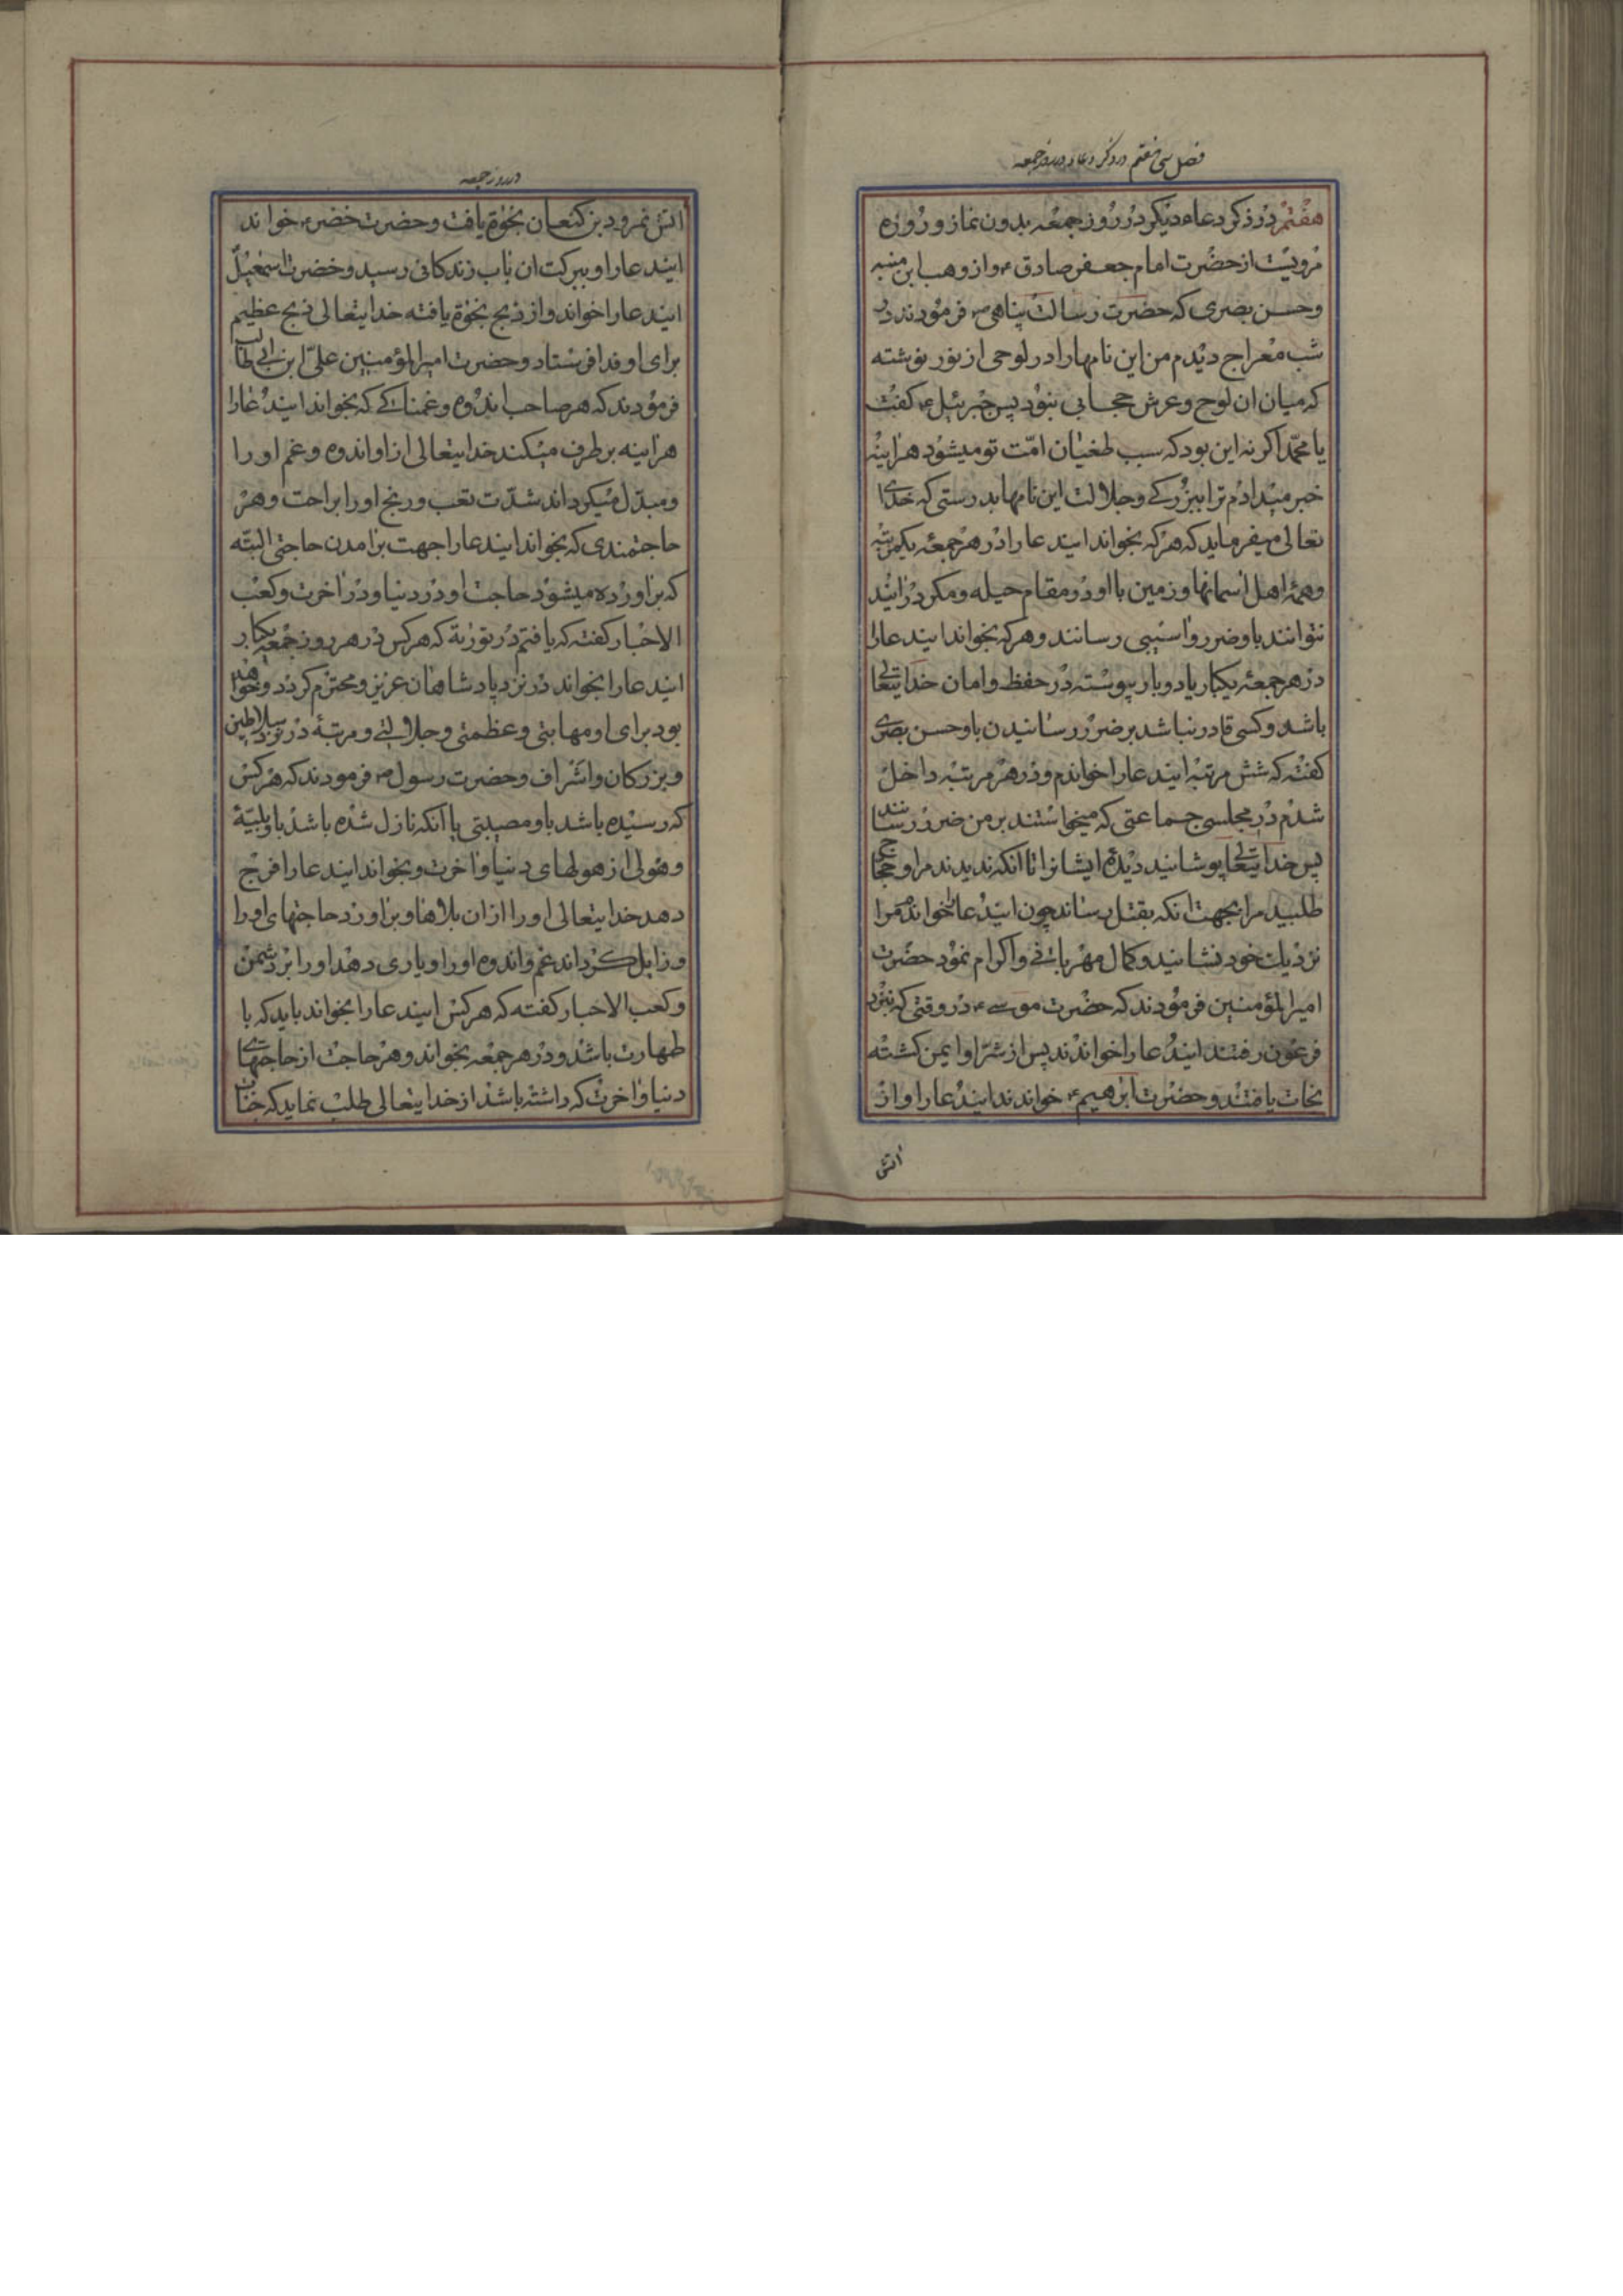 فصل سی هفتم در ذکر دعاء در روز جمعه
هفتم در ذکر دعاء دیکر در روز جمعه بدون نماز و روزه
مرویست از حضرت امام جعفر صادق ع و از وهب ابن منبه
و حسن بصری که حضرت رسالت پناهی ص فرمودند در
شب معراج دیدم من این نامها را در لوحی از نور نوشته
که میان ان لوح و عرش حجابی نبود پس جبرئیل ع کفت
یا محمّد اکر نه این بود که سبب طغیان امّت تو میشود هراینه
خبر میدادم ترا ببزرکی و جلالت این نامها بدرستی که خدای
تعالی میفرماید که هرکه بخواند ایندعا را در هر جمعه یکمرتبه
و همهٔ اهل اسمانها و زمین با او در مقام حیله و مکر درایند
نتوانند باو ضرر و اسیبی رسانند و هرکه بخواند ایندعا را
در هر جمعه یکبار یا دو بار پیوسته در حفظ و امان خدایتعالی
باشد و کسی قادر نباشد بر ضرر رسانیدن باو حسن بصری
کفته که شش مرتبه ایندعا را خواندم و در هر مرتبه داخل
شدم در مجلسی جماعتی که میخواستند بر من ضرر رسانند
پس خدایتعالی پوشانید دیدهٔ ایشانرا تا آنکه ندیدند مرا و حجاج
طلبید مرا بجهت انکه بقتل رساند چون ایندعا را خواندم مرا
نزدیک خود نشانید و کمال مهربانی و اکرام نمود حضرت
امیرالمؤمنین فرمودند که حضرت موسی ع در وقتی که بنزد
فرعون رفتند ایندعا را خواندند پس از شرّ او ایمن کشته
نجات یافتند و حضرت ابرهیم ع خواندند ایندعا را و از
اتش
در روز جمعه
اتش نمرود بن کنعان نجوة یافت و حضرت خضر ع خواند
ایندعا را و ببرکت ان باب زندکانی رسید و حضرت اسمعیل
ایندعا را خواند و از ذبح نجوة یافته خدایتعالی ذبح عظیم
برای او فدا فرستاد و حضرت امیرالمؤمنین علیّ ابن ابی طالب
فرمودند که هر صاحب اندوه و غمناکی که بخواند ایندعا را
هراینه برطرف میکند خدایتعالی از او اندوه و غم او را
و مبدّل میکرداند شدّت تعب و رنج او را براحت و هر
حاجتمندی که بخواند ایندعا را جهت برامدن حاجتی البتّه
که براورده میشود حاجت او در دنیا و در اخرت و کعب
الاحبار کفته که یافتم در توریة که هر کس در هر روز جمعه یکبار
ایندعا را بخواند در نزد پادشاهان عزیز و محترم کردد و خواهد
بود برای او مهابتی و عظمتی و جلالتی و مرتبهٔ در نزد سلاطین
و بزرکان و اشراف و حضرت رسول ص فرمودند که هر کس
که رسیده باشد باو مصیبتی یا آنکه نازل شده باشد باو بلیّهٔ
و هولی از هولهای دنیا و اخرت و بخواند ایندعا را فرج
دهد خدایتعالی او را از ان بلاها و براورد حاجتهای او را
و زایل کرداند غم و اندوه او را و یاری دهد او را بر دشمن
و کعب الاحبار کفته که هر کس ایندعا را بخواند باید که با
طهارت باشد و در هر جمعه بخواند و هر حاجت از حاجتهای
دنیا و اخرت که داشته باشد از خدایتعالی طلب نماید که جناب